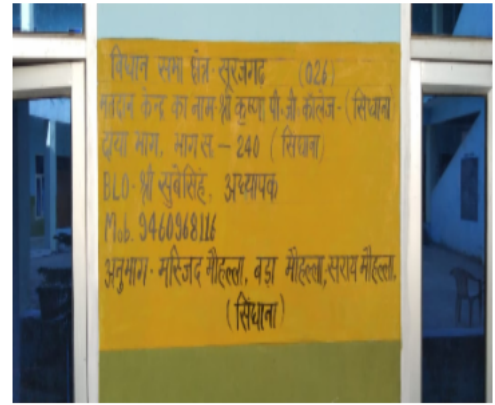 विधान सभा क्षेत्र-सूरजगढ (026)
मतदान केन्द्र का नाम श्री कृष्णा पी.जी कॉलेज-(सिंघाना)
दांया भाग, भाग स.- 240 (सिंघाना)
BLO-श्री सुबेसिंह, अध्यापक
Mob. 9460968116
अनुभाग- मस्जिद मौहल्ला, बडा मौहल्ला, सराय मौहल्ला,
(सिंघाना)